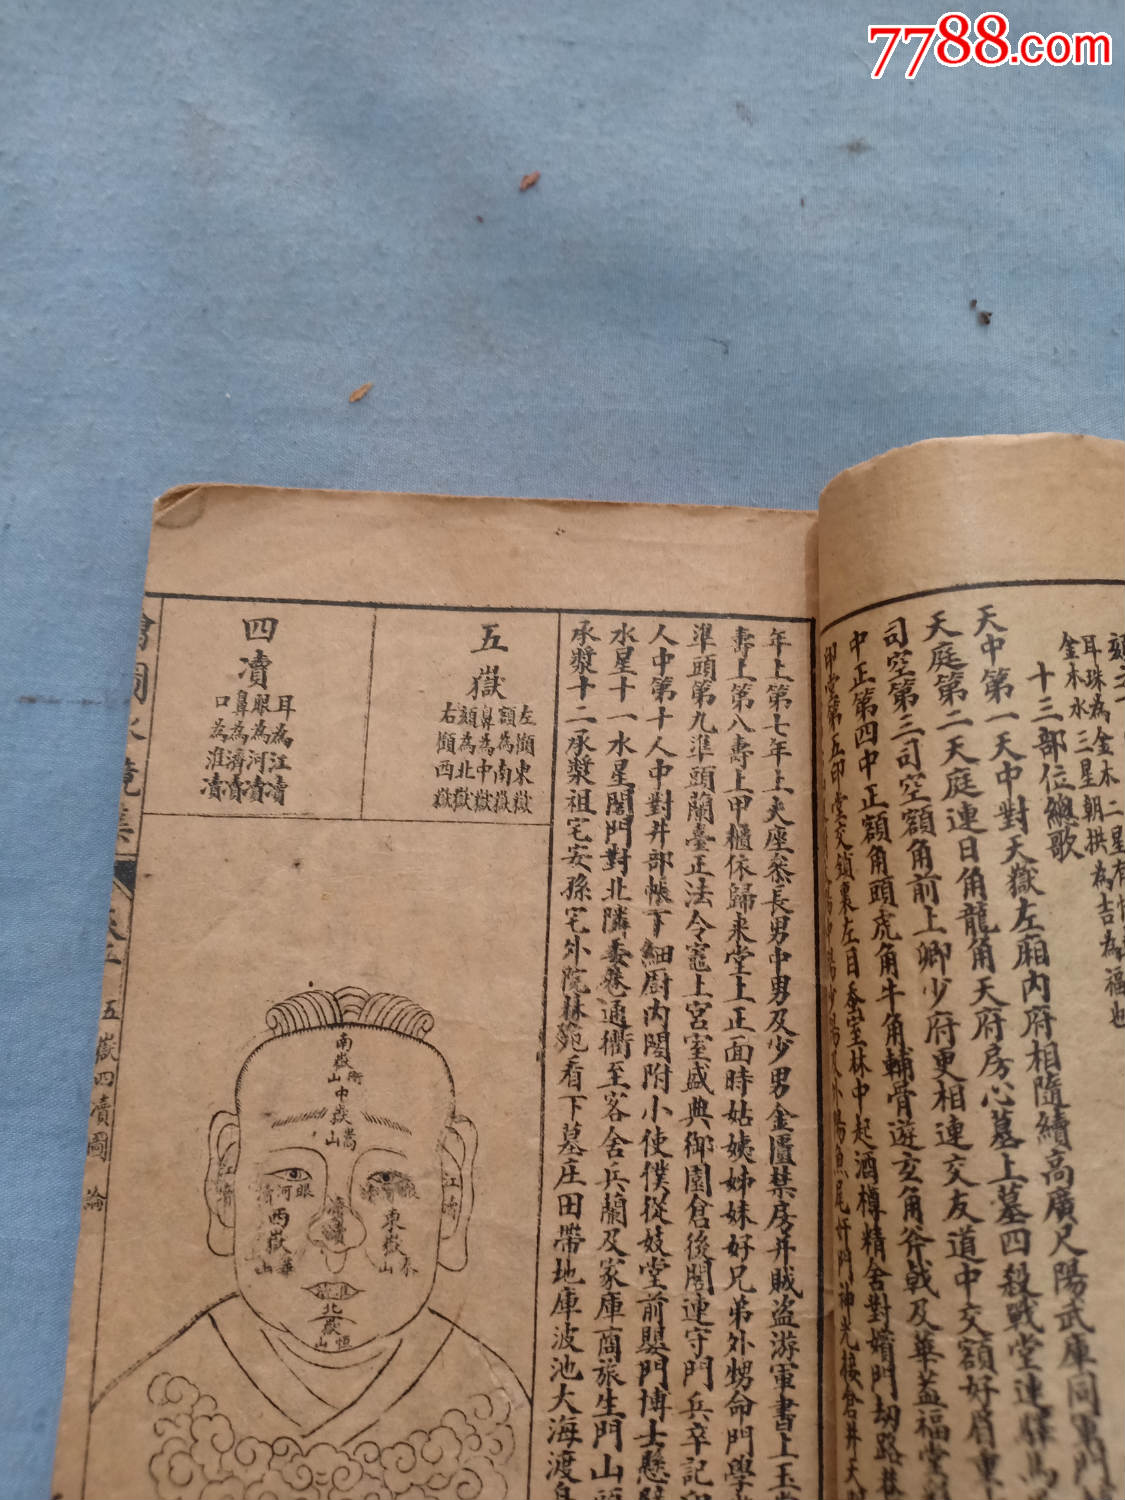 7788.com
耳珠為金木二星有
金木水三星朝拱為吉為福也
十三部位總歌
天中第一天中對天嶽左廂內府相隨續高廣尺陽武庫同軍門
天庭第二天庭連日角龍角天府房心墓上墓四殺戰堂連驛馬
司空第三司空額角前上卿少府更相連交友道中交額好眉重
中正第四中正額角頭虎角牛角輔骨遊玄角斧戟及華蓋福堂
印堂第五印堂交鎖裏左目蚕室林中起酒樽精舍對嬪門劫路巷
年上第七年上夫座參長男中男及少男金匱禁房并賊盜游軍書上玉堂
壽上第八壽上甲櫃依歸來堂上正面時姑姨姊妹好兄弟外甥命門學
準頭第九準頭蘭臺正法令竈上宮室盛典御園倉後閣連守門兵卒記印
人中第十人中對井部帳下細廚內閣附小使僕從妓堂前嬰門博士懸
水星十一水星閣門對北隣委巷通衢至客舍兵蘭及家庫商旅生門山頭
承漿十二承漿祖宅安孫宅外院林苑看下墓庄田帶地庫波池大海渡
五嶽
左顴東嶽
額為南嶽
鼻為中嶽
頦為北嶽
右顴西嶽
四瀆
耳為江瀆
眼為河瀆
鼻為濟瀆
口為淮瀆
南嶽衡山
中嶽嵩山
江瀆
眼河瀆
西嶽華山
濟瀆
東嶽泰山
江瀆
淮瀆
北嶽恒山
繪圖水鏡集
五嶽四瀆圖
論